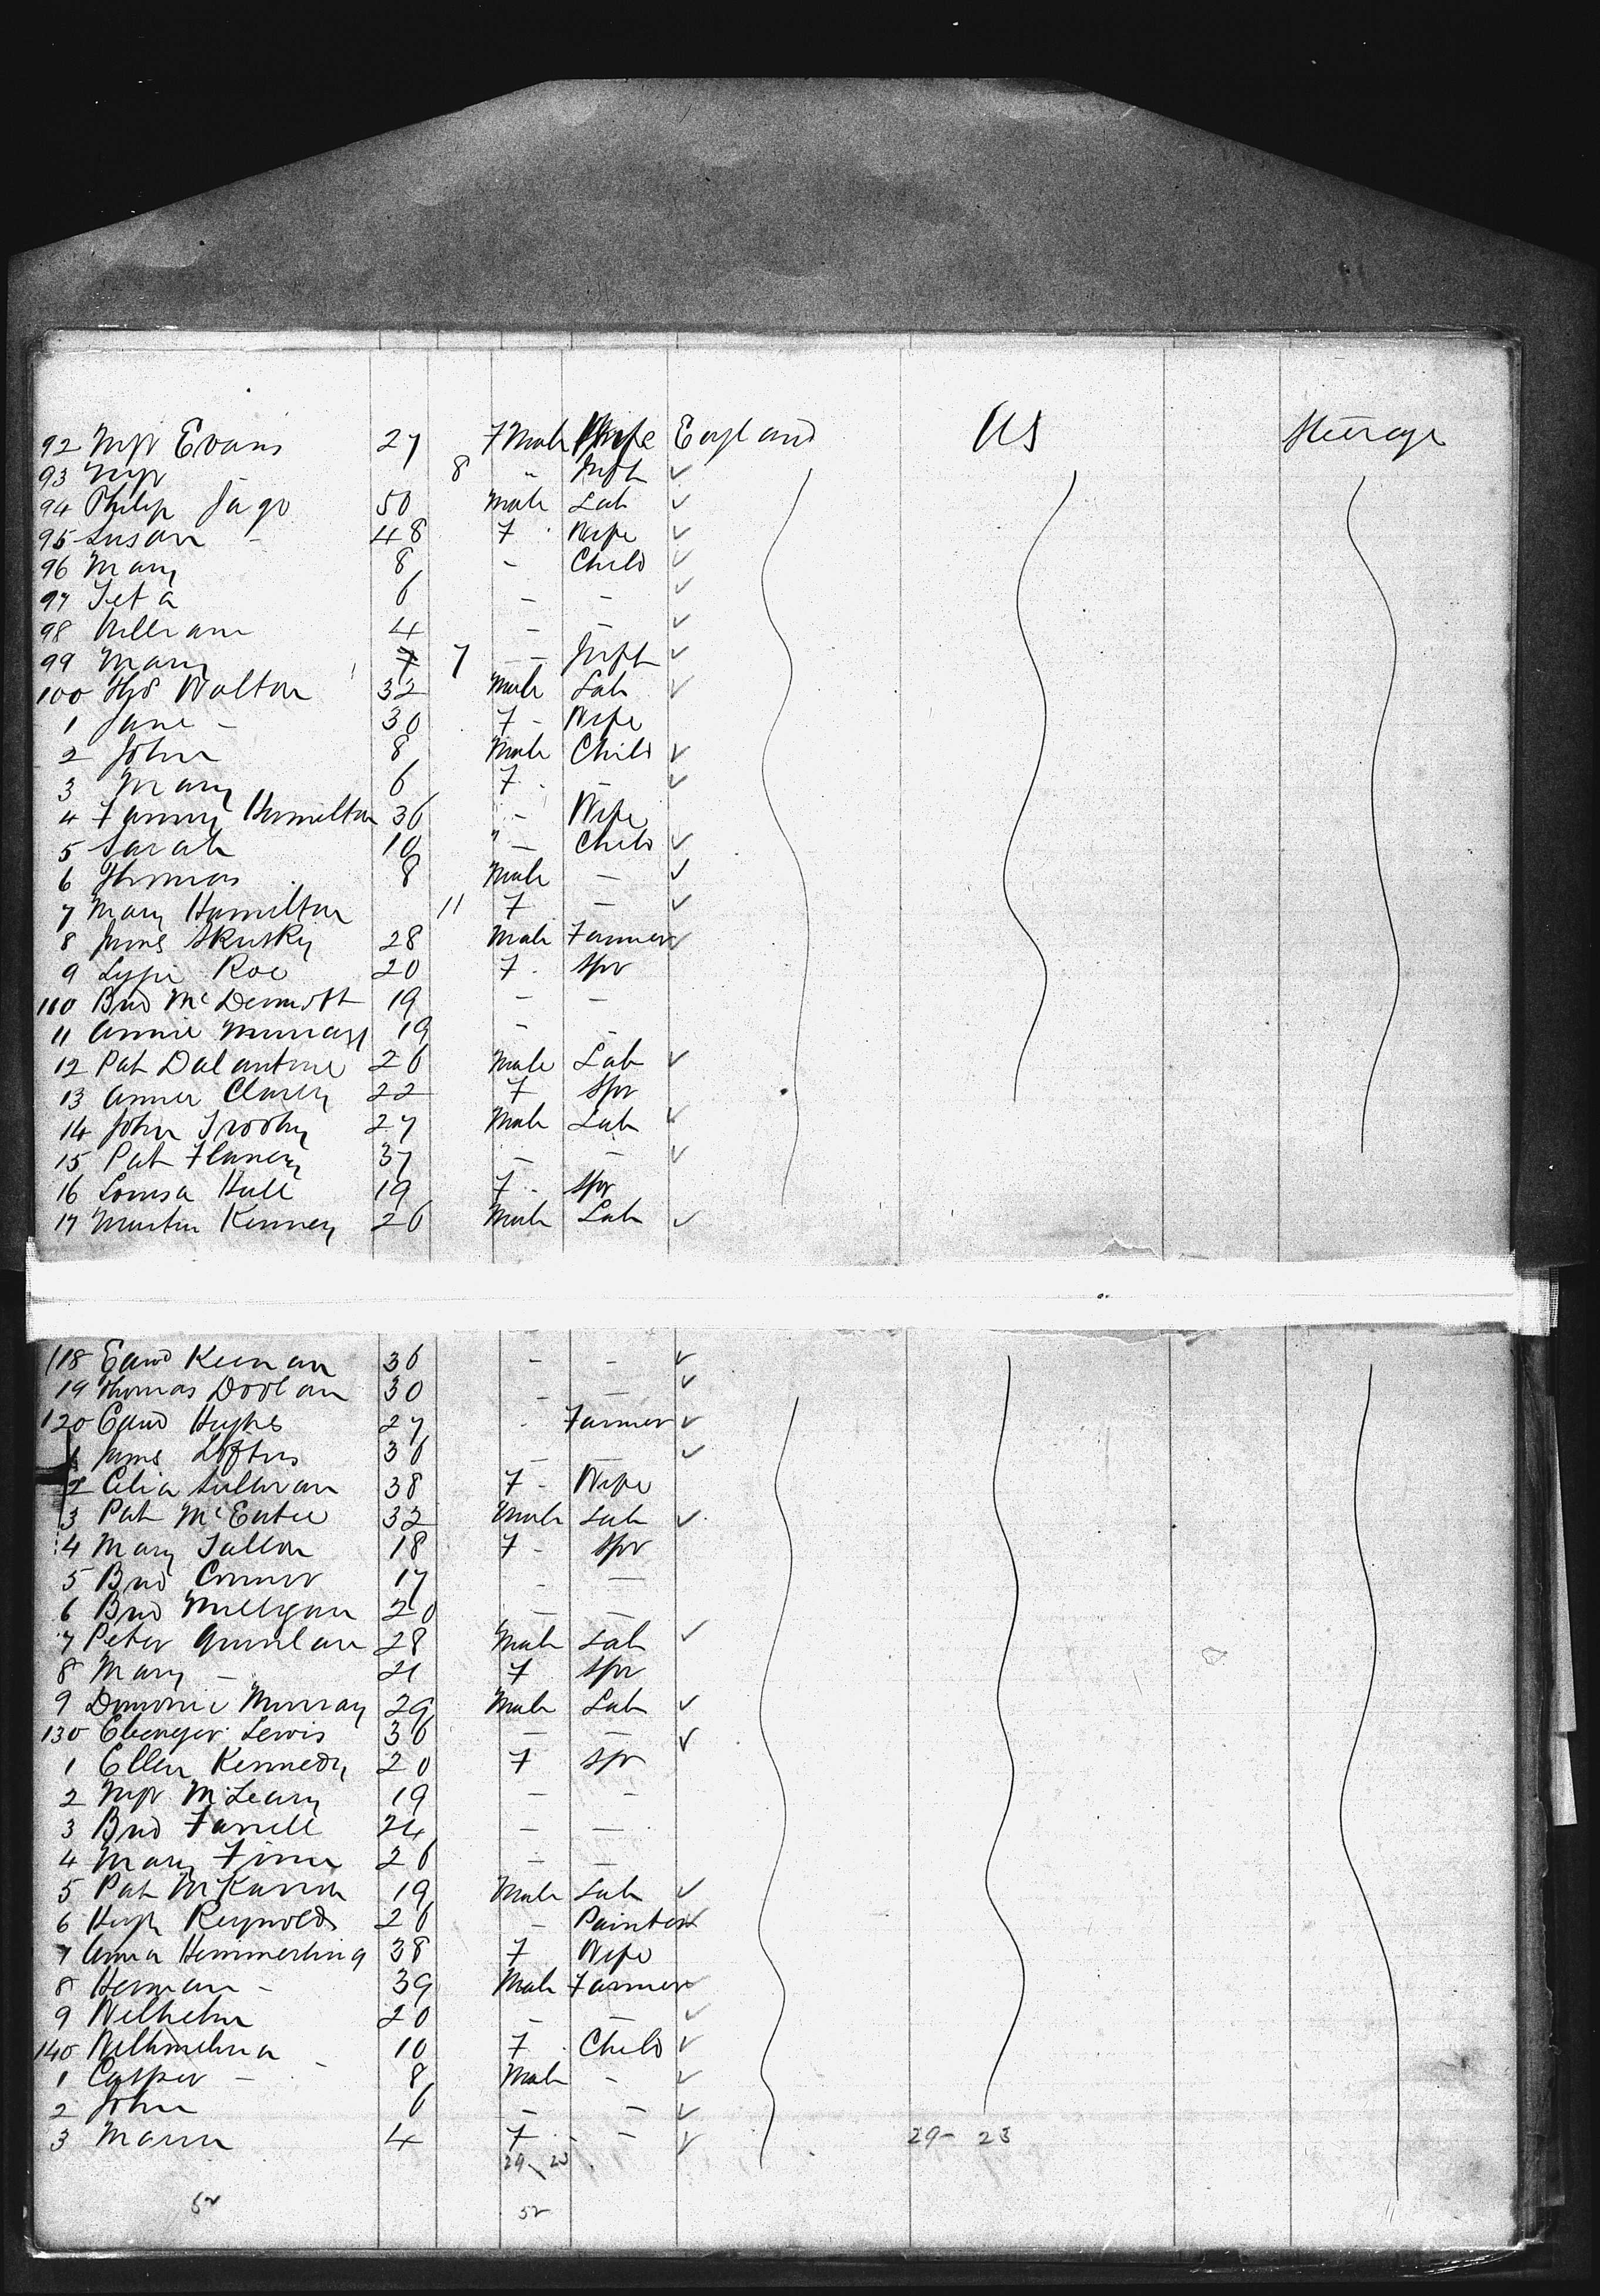 92 Mgt Evans 27 F Male Wife England US Steerage
93 Mgt 8 " Inft ✓
94 Philip Jago 50 Male Lab ✓
95 Susan - 48 F - Wife ✓
96 Mary 8 - Child ✓
97 6 - - ✓
98 William 4 - - ✓
99 Mary 7 - - Inft ✓
100 Walton 32 Male Lab ✓
1 Jane - 30 F - Wife
2 John 8 Male Child ✓
3 Mary 6 F - - ✓
4 Fanny Hamilton 36 - Wife
5 Sarah 10 " - Child ✓
6 Thomas 8 Male - ✓
7 Mary Hamilton 11 F - ✓
8 James Skusky 28 Male Farmer ✓
9 Roe 20 F - Spr
110 Brd McDermott 19 - -
11 Annie Murray 19 - -
12 Pat 26 Male Lab ✓
13 22 F Spr
14 John 27 Male Lab ✓
15 Pat Flanery 37 - - ✓
16 Louisa Hall 19 F - Spr
17 Martin Kenney 26 Male Lab ✓
118 Edwd Keenan 36 - - ✓
19 Thomas Doolan 30 - - ✓
120 Edwd Hughes 27 - Farmer ✓
1 James Loftus 36 - - ✓
2 Celia Sullivan 38 F - Wife
3 Pat McEntee 32 Male Lab ✓
4 Mary Tallon 18 F - Spr
5 Brd Connor 17 - -
6 Brd Milligan 20 - -
7 Peter Quinlan 28 Male Lab ✓
8 Mary - 21 F Spr
9 Dominic Murray 29 Male Lab ✓
130 Ebenezer Lewis 36 - - ✓
1 Ellen Kennedy 20 F Spr
2 Mgt McLeary 19 - -
3 Brd Farrell 24 - -
4 Mary Finn 26 - -
5 Pat 19 Male Lab ✓
6 Hugh Reynolds 26 - Painter ✓
7 Anna Hemmerling 38 F Wife
8 Herman - 39 Male Farmer ✓
9 Wilhelm 20 - - ✓
140 Wilhmelmina - 10 F - Child ✓
1 Casper - 8 Male - ✓
2 John 6 - - ✓
3 4 F - - ✓ 29 - 23
29 23
52 52